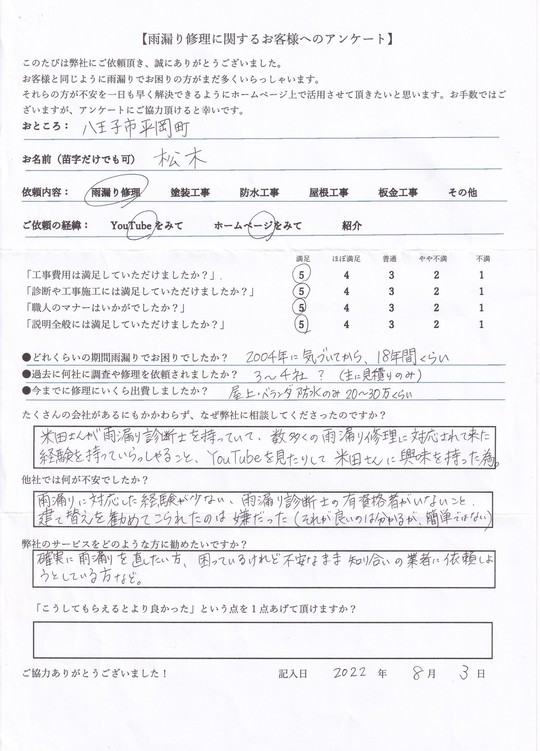 【雨漏り修理に関するお客様へのアンケート】
このたびは弊社にご依頼頂き、誠にありがとうございました。
お客様と同じように雨漏りでお困りの方がまだ多くいらっしゃいます。
それらの方が不安を一日も早く解決できるようにホームページ上で活用させて頂きたいと思います。お手数ではご
ざいますが、アンケートにご協力頂けると幸いです。
おところ： 八王子市平岡町
お名前（苗字だけでも可） 松木
依頼内容： 雨漏り修理 塗装工事 防水工事 屋根工事 板金工事 その他
ご依頼の経緯： YouTubeをみて ホームページをみて 紹介
満足 ほぼ満足 普通 やや不満 不満
「工事費用は満足していただけましたか？」 5 4 3 2 1
「診断や工事施工には満足していただけましたか？」 5 4 3 2 1
「職人のマナーはいかがでしたか？」 5 4 3 2 1
「説明全般には満足していただけましたか？」 5 4 3 2 1
●どれくらいの期間雨漏りでお困りでしたか？ 2004年に気づいてから、18年間くらい
●過去に何社に調査や修理を依頼されましたか？ 3〜4社？（主に見積りのみ）
●今までに修理にいくら出費しましたか？ 屋上・ベランダ防水のみ20〜30万くらい
たくさんの会社があるにもかかわらず、なぜ弊社に相談してくださったのですか？
米田さんが雨漏り診断士を持っていて、数多くの雨漏り修理に対応されて来た
経験を持っていらっしゃること、YouTubeを見たりして米田さんに興味を持った為。
他社では何が不安でしたか？
雨漏りに対応した経験が少ない、雨漏り診断士の有資格者がいないこと、
建て替えを勧めてこられたのは嫌だった（それが良いのは分かるが、簡単ではない）
弊社のサービスをどのような方に勧めたいですか？
確実に雨漏りを直したい方、困っているけれど不安なまま知り合いの業者に依頼しよ
うとしている方など。
「こうしてもらえるとより良かった」という点を1点あげて頂けますか？
ご協力ありがとうございました！ 記入日 2022 年 8 月 3 日